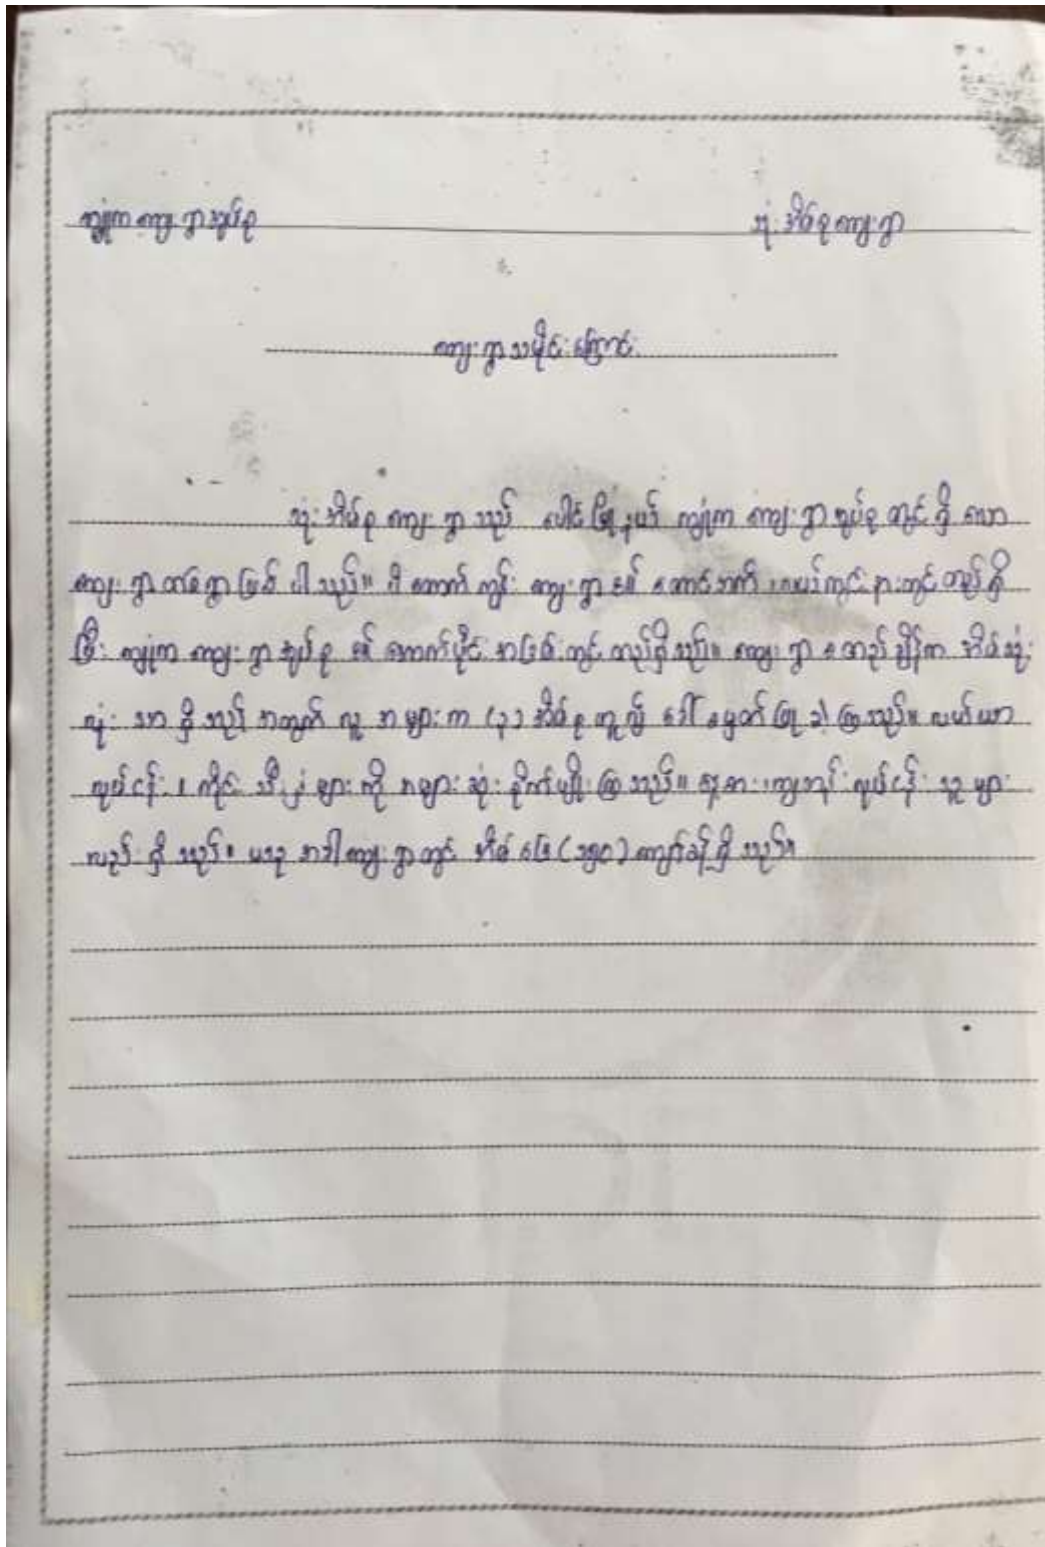 ကျုံက ကျေးရွာအုပ်စု သုံးအိမ်စုကျေးရွာ
ကျေးရွာသမိုင်းကြောင်း
သုံးအိမ်စု ကျေးရွာ သည် ပေါင်မြို့နယ် ကျုံက ကျေးရွာ အုပ်စု တွင် ရှိ သော
ကျေးရွာ တစ်ရွာ ဖြစ် ပါ သည်။ ကျွန်း ကျေးရွာ ၏ တောင်ဘက် လယ်ကွင်းနားတွင် တည်ရှိ
ပြီး ကျုံက ကျေးရွာ အုပ်စု ၏ အောက်ပိုင်း အခြမ်းတွင် တည်ရှိသည်။ ကျေးရွာ စတည်ချိန်က အိမ်သုံး
လုံး သာ ရှိ သည့် အတွက် လူ အများက (၃) အိမ်စု ဟူ၍ ခေါ်ဝေါ် ခဲ့ ကြ သည်။ လယ်ယာ
လုပ်ငန်း ၊ ကိုင်းသီးနှံ များ ကို အများဆုံး စိုက်ပျိုး ကြ သည်။ လုပ်ငန်း သူ များ
လည်း ရှိ သည်။ ယခု အခါ ကျေးရွာတွင် အိမ်ခြေ (၁၅၀) ကျော်ခန့် ရှိ သည်။